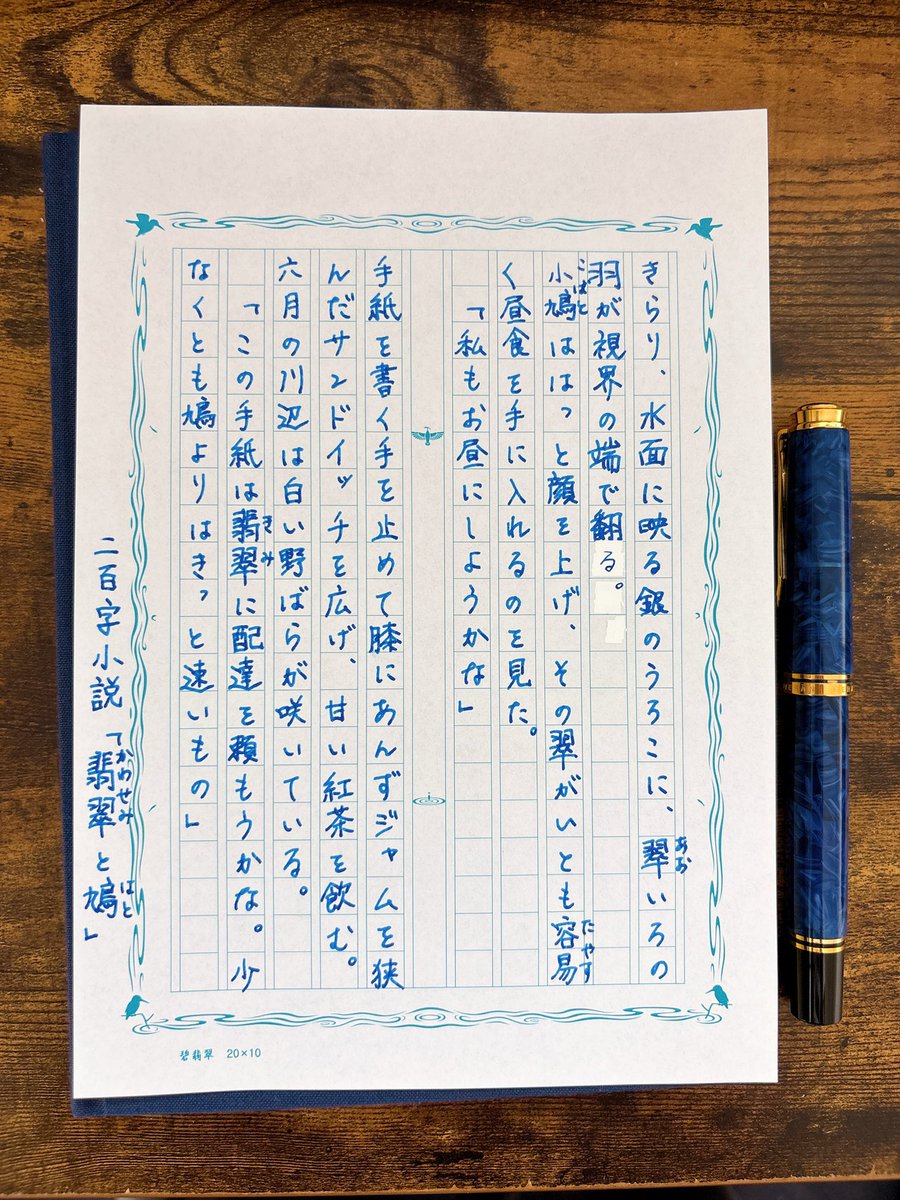 きらり、水面に映る銀のうろこに、翠いろの
あお
羽が視界の端で翻る。
小鳩ははっと顔を上げ、その翠がいとも容易
こばと
たやす
く昼食を手に入れるのを見た。
「私もお昼にしようかな」
手紙を書く手を止めて膝にあんずジャムを狭
んだサンドイッチを広げ、甘い紅茶を飲む。
六月の川辺は白い野ばらが咲いている。
「この手紙は翡翠に配達を頼もうかな。少
きみ
なくとも鳩よりはきっと速いもの」
二百字小説「翡翠と鳩」
かわせみ
はと
碧翡翠 20×10